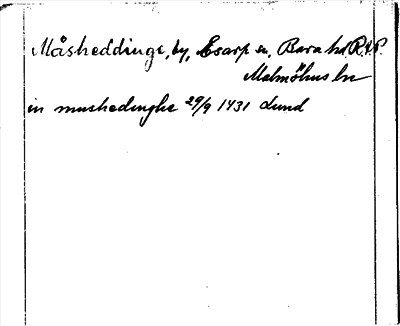 Måsheddinge, by, Esarp sn, Bara hd, R.A.P.
Malmöhus ln
in mushedinghe 29/9 1431 Lund